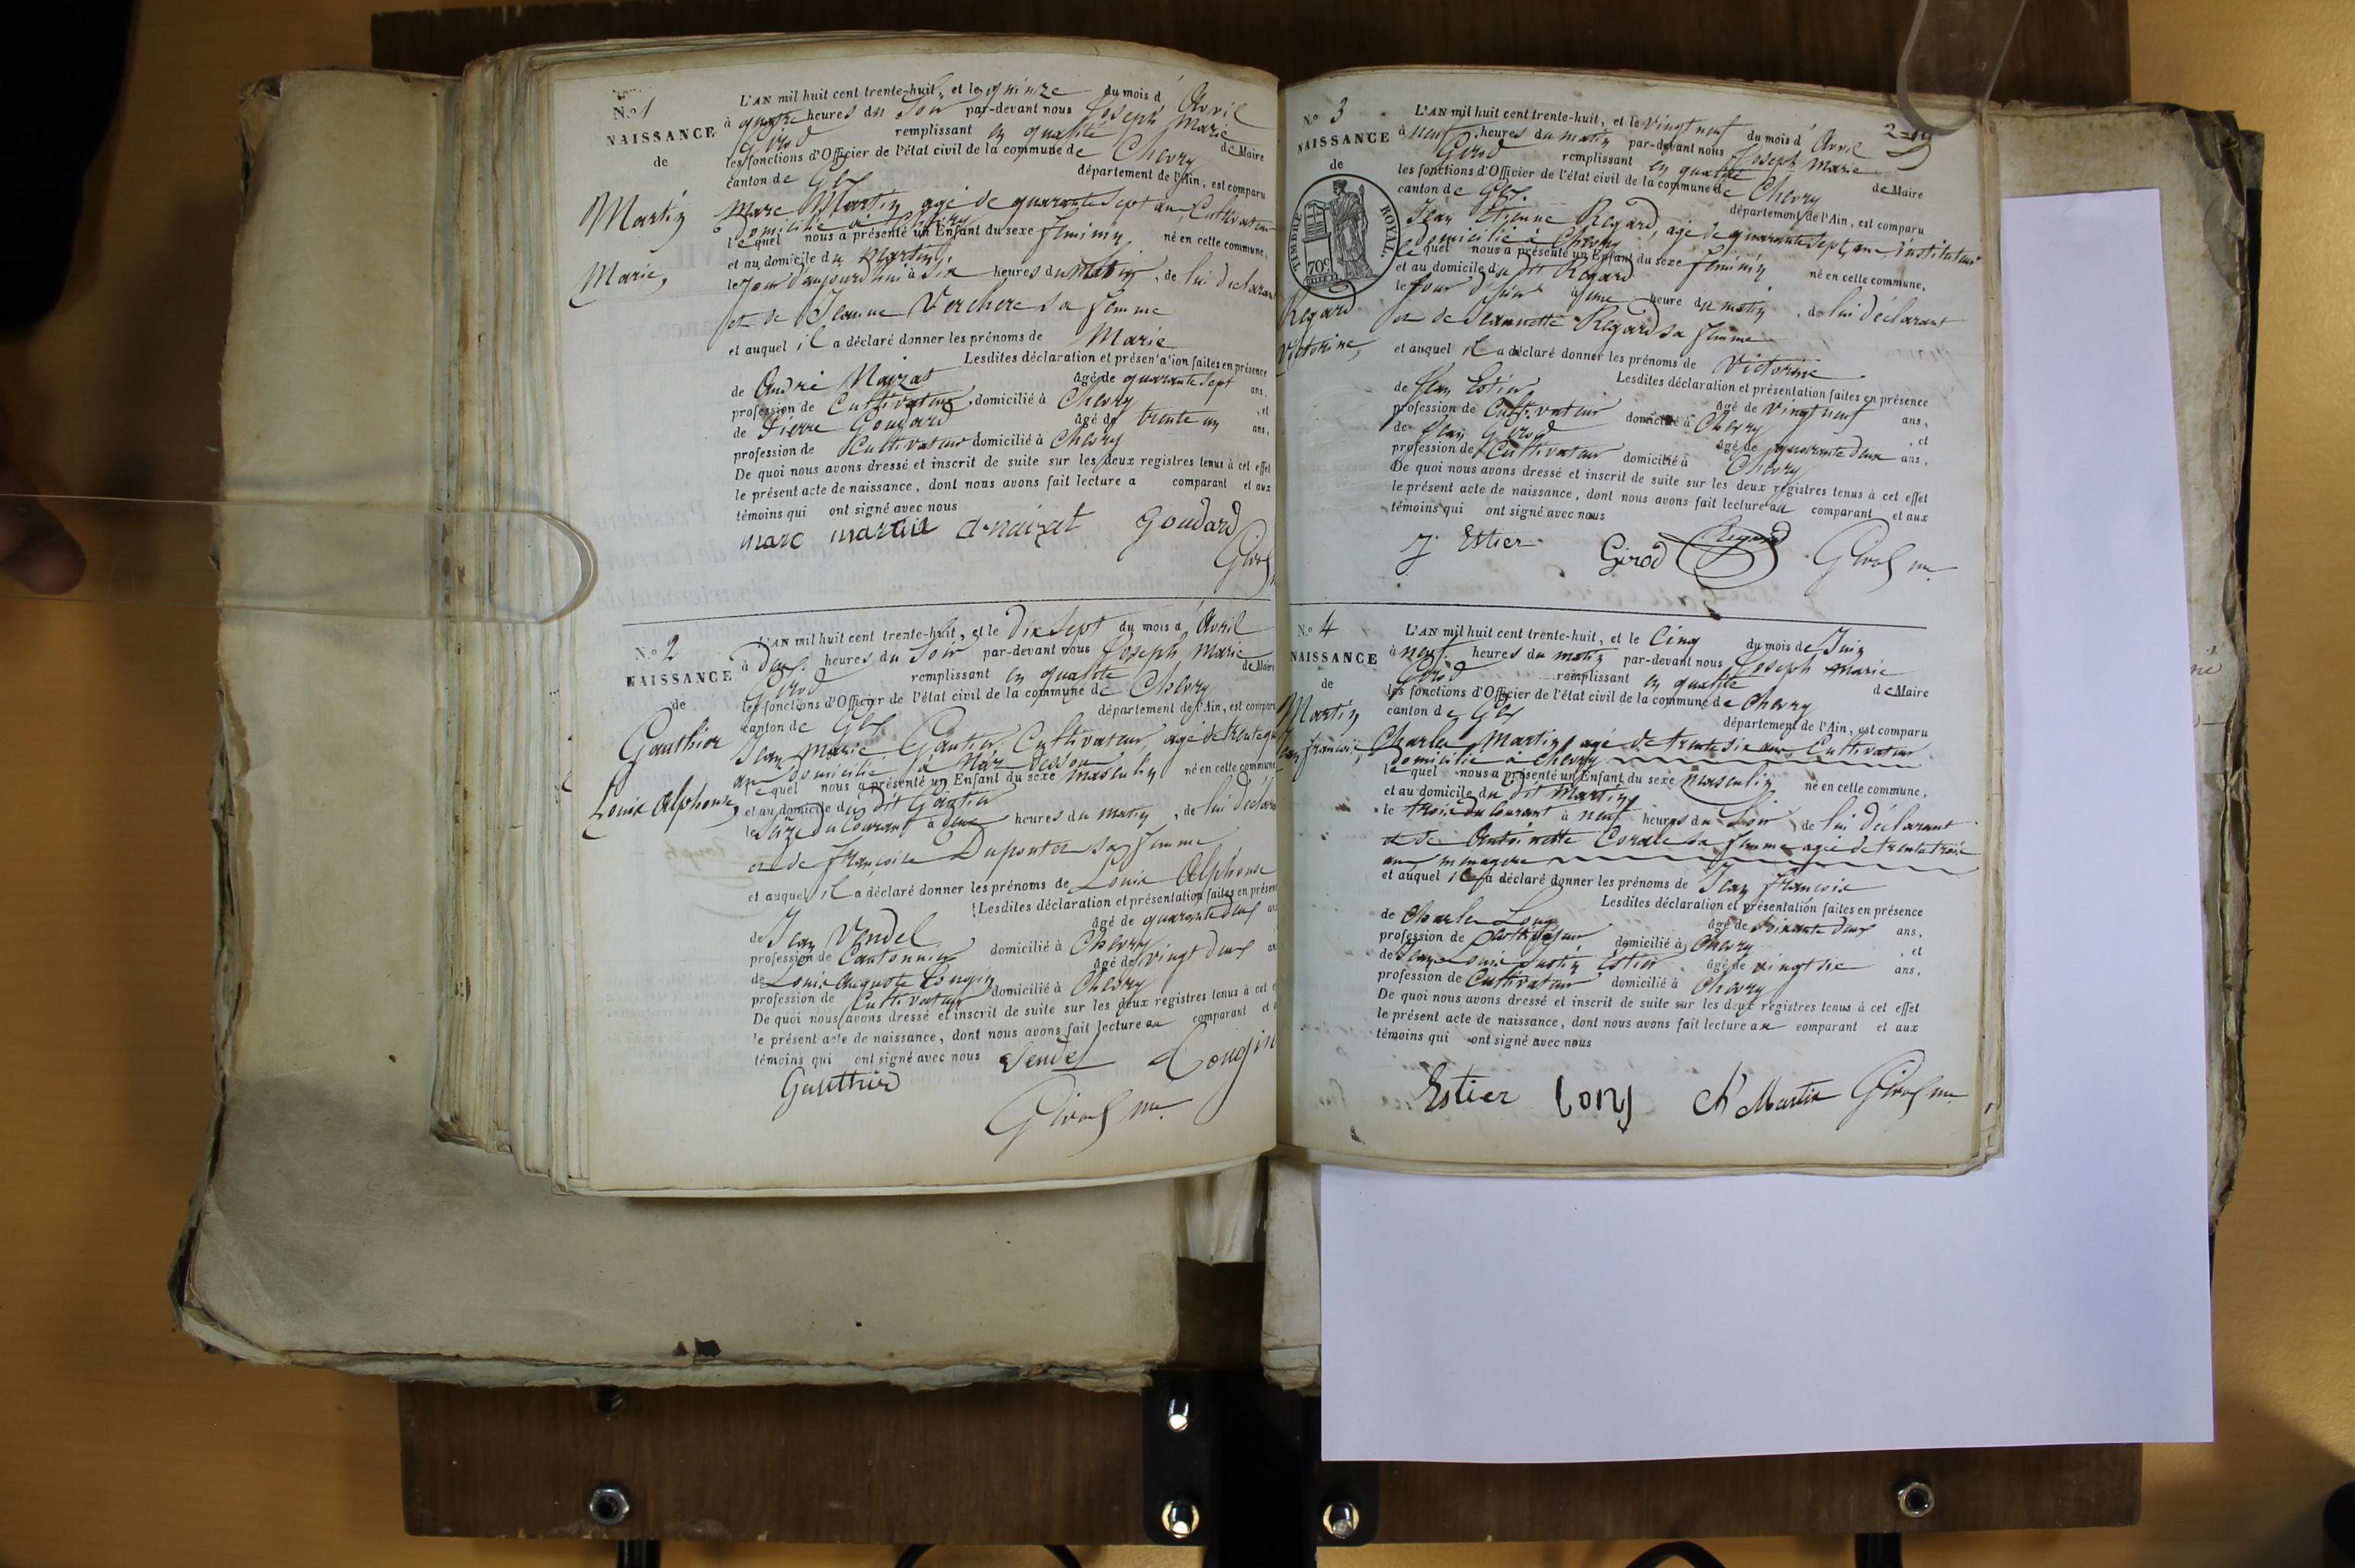 N.o 1
NAISSANCE
de
Martin
Marie,
L'AN mil huit cent trente-huit, et le quinze du mois d'Avril
à quatre heures du Soir par-devant nous Joseph Marie
Girod remplissant en qualité de Maire
les fonctions d'Officier de l'état civil de la commune de Chevry
canton de Gex département de l'Ain, est comparu
Marc Martin agé de quarante sept ans, Cultivateur
domicilié à Chevry
lequel nous a présenté un Enfant du sexe féminin, né en cette commune,
et au domicile du Martin,
le jour d'aujourd'hui à six heures du matin, de lui déclarant
et de Jeanne Verchere sa femme
et auquel il a déclaré donner les prénoms de Marie
Lesdites déclaration et présentation faites en présence
de André Naizat âgé de quarante sept ans,
profession de Cultivateur, domicilié à Chevry, et
de Pierre Goudard âgé de trente un ans,
profession de Cultivateur domicilié à Chevry
De quoi nous avons dressé et inscrit de suite sur les deux registres tenus à cet effet
le présent acte de naissance, dont nous avons fait lecture a comparant et aux
témoins qui ont signé avec nous
marc martin a naizat Goudard
Girod
N.o 2
NAISSANCE
de
Gauthier
Louis Alphonse,
L'AN mil huit cent trente-huit, et le dix sept du mois d'Avril
à deux heures du Soir par-devant nous Joseph Marie
Girod remplissant en qualité de Maire
les fonctions d'Officier de l'état civil de la commune de Chevry
canton de Gex département de l'Ain, est comparu
Jean Marie Gautier, Cultivateur, agé de trente
ans domicilié à Naz dessous
lequel nous a présenté un Enfant du sexe masculin né en cette commune
et au domicile du dit Gautier
le Seize du Courant à deux heures du matin, de lui déclarant
et de Françoise Duponter sa femme
et auquel il a déclaré donner les prénoms de Louis Alphonse
Lesdites déclaration et présentation faites en présence
de Jean Vendel âgé de quarante deux ans
profession de Cantonnier domicilié à Chevry
de Louis Auguste Gougin âgé de vingt deux ans
profession de Cultivateur domicilié à Chevry
De quoi nous avons dressé et inscrit de suite sur les deux registres tenus à cet
le présent acte de naissance, dont nous avons fait lecture au comparant et
témoins qui ont signé avec nous Vendel
Gauthier
Girod me
N.o 3
NAISSANCE
de
TIMBRE ROYAL
70c
Regard
Victorine,
2
L'AN mil huit cent trente-huit, et le vingt neuf du mois d'Avril
à neuf heures du matin par-devant nous Joseph Marie
Girod remplissant en qualité de Maire
les fonctions d'Officier de l'état civil de la commune de Chevry
canton de Gex. département de l'Ain, est comparu
Jean Etienne Regard, agé de quarante sept ans, instituteur
domicilié à Chevry
lequel nous a présenté un Enfant du sexe féminin né en cette commune,
et au domicile du dit Regard
le jour d'hier à une heure du matin, de lui déclarant
et de Jeannette Regard sa femme
et auquel il a déclaré donner les prénoms de Victorine
Lesdites déclaration et présentation faites en présence
de Jean Estier âgé de vingt neuf ans,
profession de Cultivateur domicilié à Chevry, et
de Jean Girod âgé de quarante deux ans,
profession de Cultivateur domicilié à Chevry
De quoi nous avons dressé et inscrit de suite sur les deux registres tenus à cet effet
le présent acte de naissance, dont nous avons fait lecture au comparant et aux
témoins qui ont signé avec nous
j. Estier Girod Regard Girod me
N.o 4
NAISSANCE
de
Martin
Jean François,
L'AN mil huit cent trente-huit, et le Cinq du mois de Juin
à neuf heures du matin par-devant nous Joseph Marie
Girod remplissant en qualité de Maire
les fonctions d'Officier de l'état civil de la commune de Chevry
canton de Gex département de l'Ain, est comparu
Charles Martin, agé de trente six ans Cultivateur
domicilié à Chevry
lequel nous a présenté un Enfant du sexe masculin né en cette commune,
et au domicile du dit Martin,
le trois du Courant à neuf heures du Soir, de lui déclarant
et de Antoinette Corale sa femme agée de trente trois
ans ménagère
et auquel il a déclaré donner les prénoms de Jean François
Lesdites déclaration et présentation faites en présence
de Charles Long âgé de soixante deux ans,
profession de domicilié à Chevry, et
de Jean Louis Justin Estier âgé de vingt six ans,
profession de Cultivateur domicilié à Chevry
De quoi nous avons dressé et inscrit de suite sur les deux registres tenus à cet effet
le présent acte de naissance, dont nous avons fait lecture au comparant et aux
témoins qui ont signé avec nous
Estier Long Ch Martin Girod me